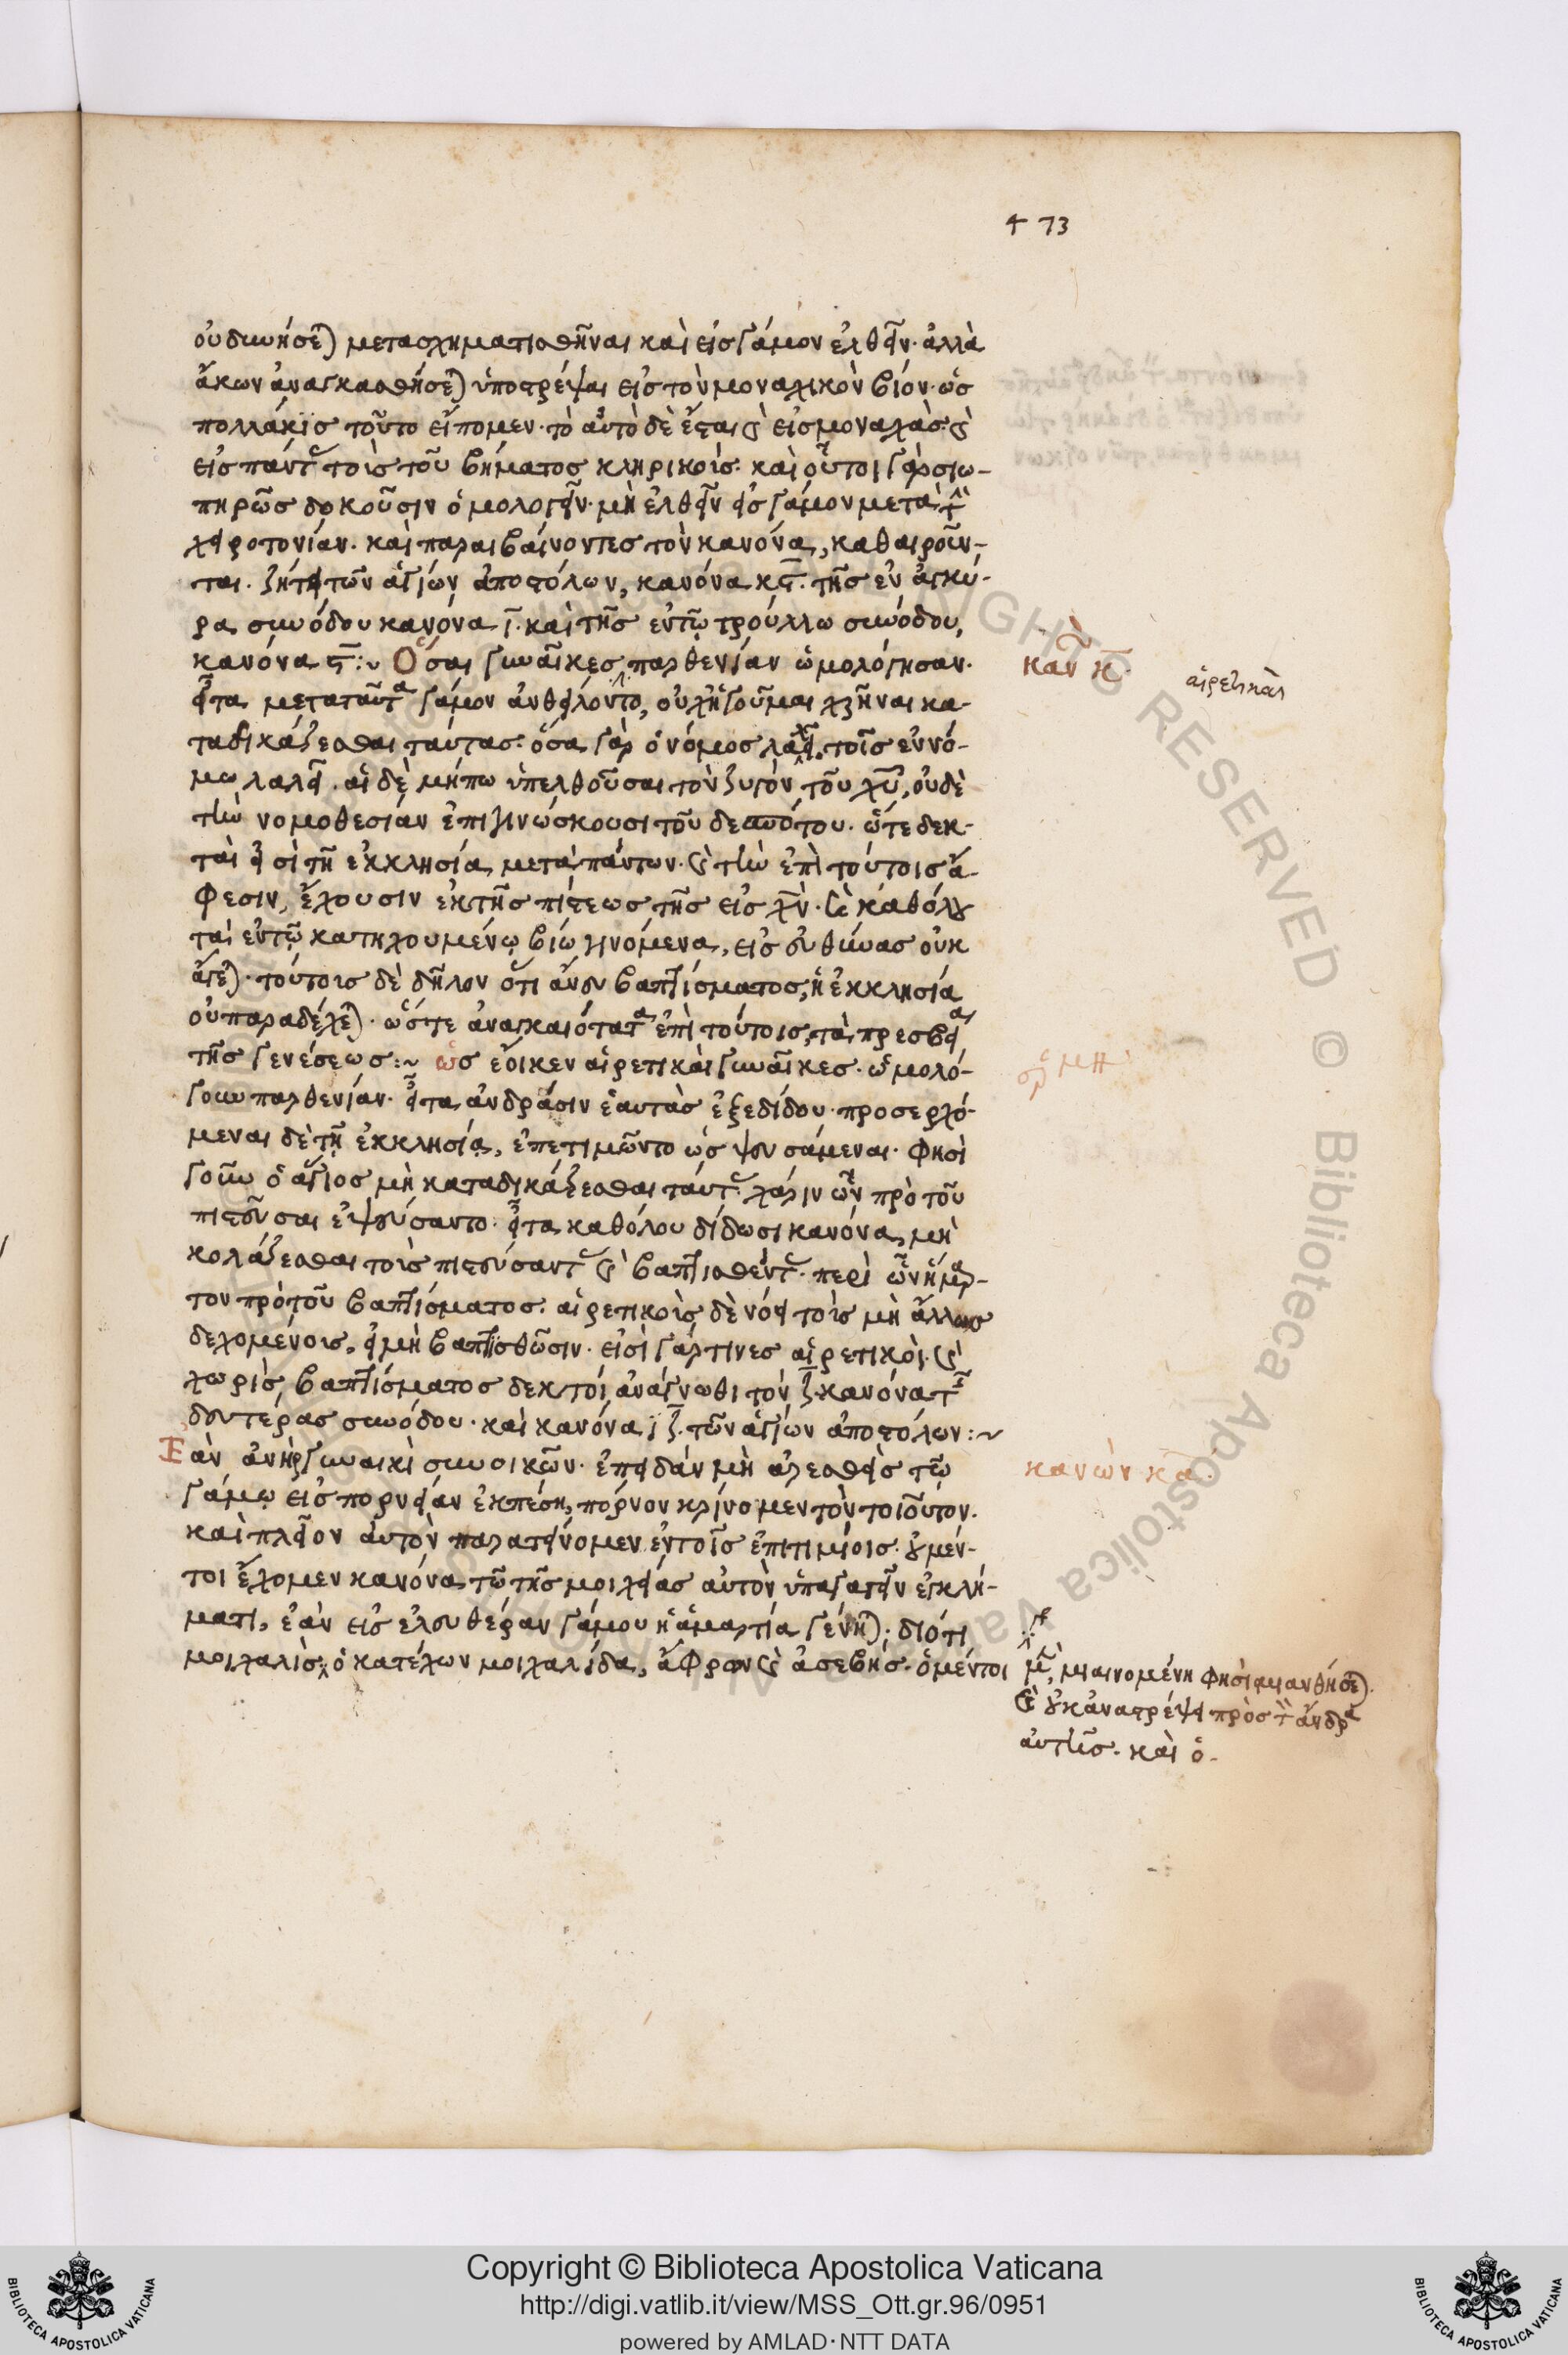 473
οὐ δυνήσεται μετασχηματισθῆναι καὶ εἰς γάμον ἐλθεῖν· ἀλλὰ
ἄκων ἀναγκασθήσεται ὑποστρέψαι εἰς τὸν μοναχικὸν βίον· ὡς
πολλάκις τοῦτο εἴπομεν· τὸ αὐτὸ δὲ ἔσται καὶ εἰς μοναχὰς καὶ
εἰς παντας τοὺς τοῦ βήματος κληρικοὺς· καὶ οὗτοι γὰρ σιω-
πηρῶς δοκοῦσιν ὁμολογεῖν· μὴ ἐλθεῖν εἰς γάμον μετὰ τὴν
χειροτονίαν· καὶ παραβαίνοντες τὸν κανόνα, καθαιροῦν-
ται. ζήτει τῶν ἁγίων ἀποστόλων, κανόνα κϛ. τῆς ἐν ἀγκύ-
ρα συνόδου κανόνα ι. καὶ τῆς ἐν τῷ τρούλλω συνόδου,
κανόνα ϛ:~ Ὅσαι γυναῖκες παρθενίαν ὡμολόγησαν·
καν κ.
αἱρετικαὶ
εἶτα μετὰ ταῦτα γάμον ἀνθείλοντο, οὐχ ἡγοῦμαι χρῆναι κα-
ταδικάζεσθαι ταύτας· ὅσα γὰρ ὁ νόμος λαλεῖ, τοῖς ἐννό-
μω λαλεῖ. αἱ δὲ μήπω ὑπελθοῦσαι τὸν ζυγὸν τοῦ χυ, οὐδὲ
τὴν νομοθεσίαν ἐπιγινώσκουσι τοῦ δεσπότου· ὥστε δεκ-
ταὶ εἰσὶ τῇ ἐκκλησία, μετὰ πάντων· καὶ τὴν ἐπὶ τούτοις ἄ-
φεσιν, ἔχουσιν ἐκ τῆς πίστεως τῆς εἰς χν· καὶ καθόλου
τὰ ἐν τῷ κατηχουμένῳ βίω γινόμενα, εἰς εὐθύνας οὐκ
ἄγεται· τούτους δὲ δῆλον ὅτι ἄνευ βαπτίσματος, ἡ ἐκκλησία
οὐ παραδέχεται· ὥστε ἀναγκαιότατα ἐπὶ τούτοις, τὰ πρεσβεῖα
τῆς γενέσεως:~ ὡς ἔοικεν αἱρετικαὶ γυναῖκες· ὡμολό-
γουν παρθενίαν· εἶτα ἀνδράσιν ἑαυτὰς ἐξεδίδου· προσερχό-
μεναι δὲ τῇ ἐκκλησίᾳ, ἐπετιμῶντο ὡς ψευσάμεναι· φησὶ
γοῦν ὁ ἅγιος μὴ καταδικάζεσθαι ταύτας χάριν ὧν πρὸ τοῦ
πιστεῦσαι ἐψεύσαντο· εἶτα καθόλου δίδωσι κανόνα, μὴ
κολάζεσθαι τοὺς πιστεύσαντας καὶ βαπτισθέντας· περὶ ὧν ἥμαρ-
τον πρὸ τοῦ βαπτίσματος· αἱρετικοὺς δὲ νόει τοὺς μὴ ἄλλως
δεχομένους, εἰ μὴ βαπτισθῶσιν· εἰσὶ γάρ τινες αἱρετικοὶ· καὶ
χωρὶς βαπτίσματος δεκτοί, ἀνάγνωθι τὸν ζ κανόνα τῆς
δευτέρας συνόδου· καὶ κανόνα ιζ τῶν ἁγίων ἀποστόλων:~
Ἐὰν ἀνὴρ γυναικὶ συνοικῶν· ἐπειδὰν μὴ ἀρεσθεὶς τῷ
κανὼν κα.
γάμῳ εἰς πορνείαν ἐκπέση, πόρνον κρίνομεν τὸν τοιοῦτον·
καὶ πλεῖον αὐτὸν παρατείνομεν ἐν τοῖς ἐπιτιμίοις· οὐ μέν-
τοι ἔχομεν κανόνα, τῷ τῆς μοιχείας αὐτὸν ὑπαγαγεῖν ἐγκλή-
ματι, ἐὰν εἰς ἐλευθέραν γάμου ἡ ἁμαρτία γένηται· διότι
μοιχαλὶς, ὁ κατέχων μοιχαλίδα, ἄφρων καὶ ἀσεβής· ὁ μέντοι
μιαινομένη φησὶ μιανθήσεται.
καὶ οὐκ ἀναστρέψει πρὸς τὸν ἄνδρα
αὐτῆς· καὶ ὁ-
Copyright © Biblioteca Apostolica Vaticana
http://digi.vatlib.it/view/MSS_Ott.gr.96/0951
powered by AMLAD·NTT DATA